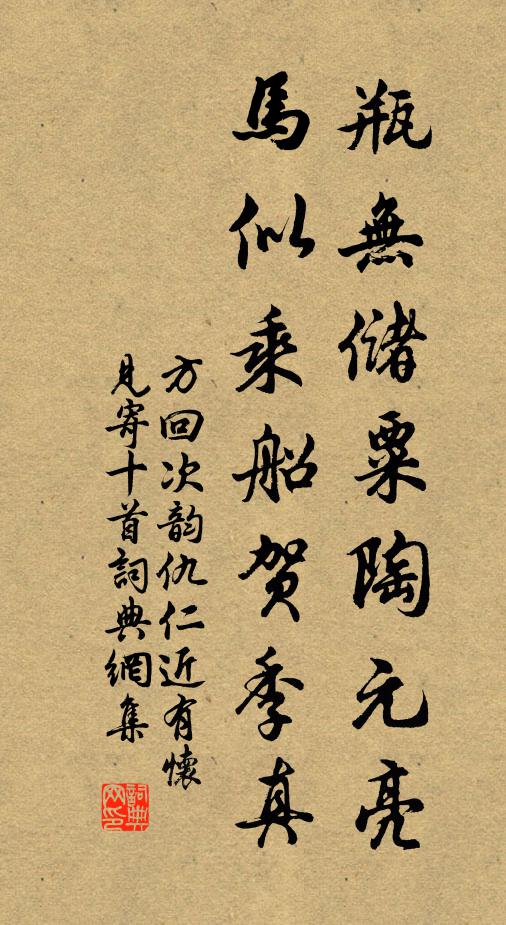 瓶無儲粟陶元亮
馬似乘船賀季真
方回次韵仇仁近有懷
見寄十首詞典網集
詞典網印